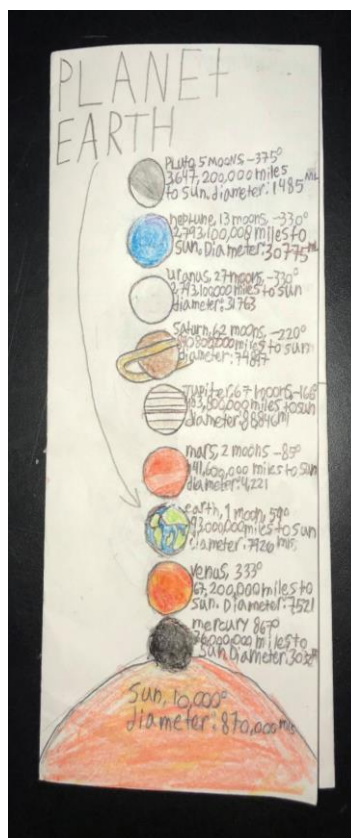 PLANEt
EARTH
Pluto, 5 moons -375°
3,647,200,000 miles
to sun. diameter: 1485 ML
neptune, 13 moons, -330°
2,793,100,000 miles to
sun. Diameter: 30775 ML
Uranus, 27 moons, -330°
2,793,100000 miles to sun
diameter: 31763
Saturn, 62 moons, -220°
miles to sun
diameter: 74897
Jupiter, 67 moons, -166°
miles to sun
diameter: 88846 mi
mars, 2 moons -85°
141,600,000 miles to sun
diameter: 4,221
earth, 1 moon, 59°
93,000000 miles to sun
diameter: 7926 mis
venus, 333°
67,200,000 miles to
sun. Diameter: 7521
mercury 867°
miles to
Sun Diameter: 3032
Sun, 10,000°
diameter: 870,000 mis